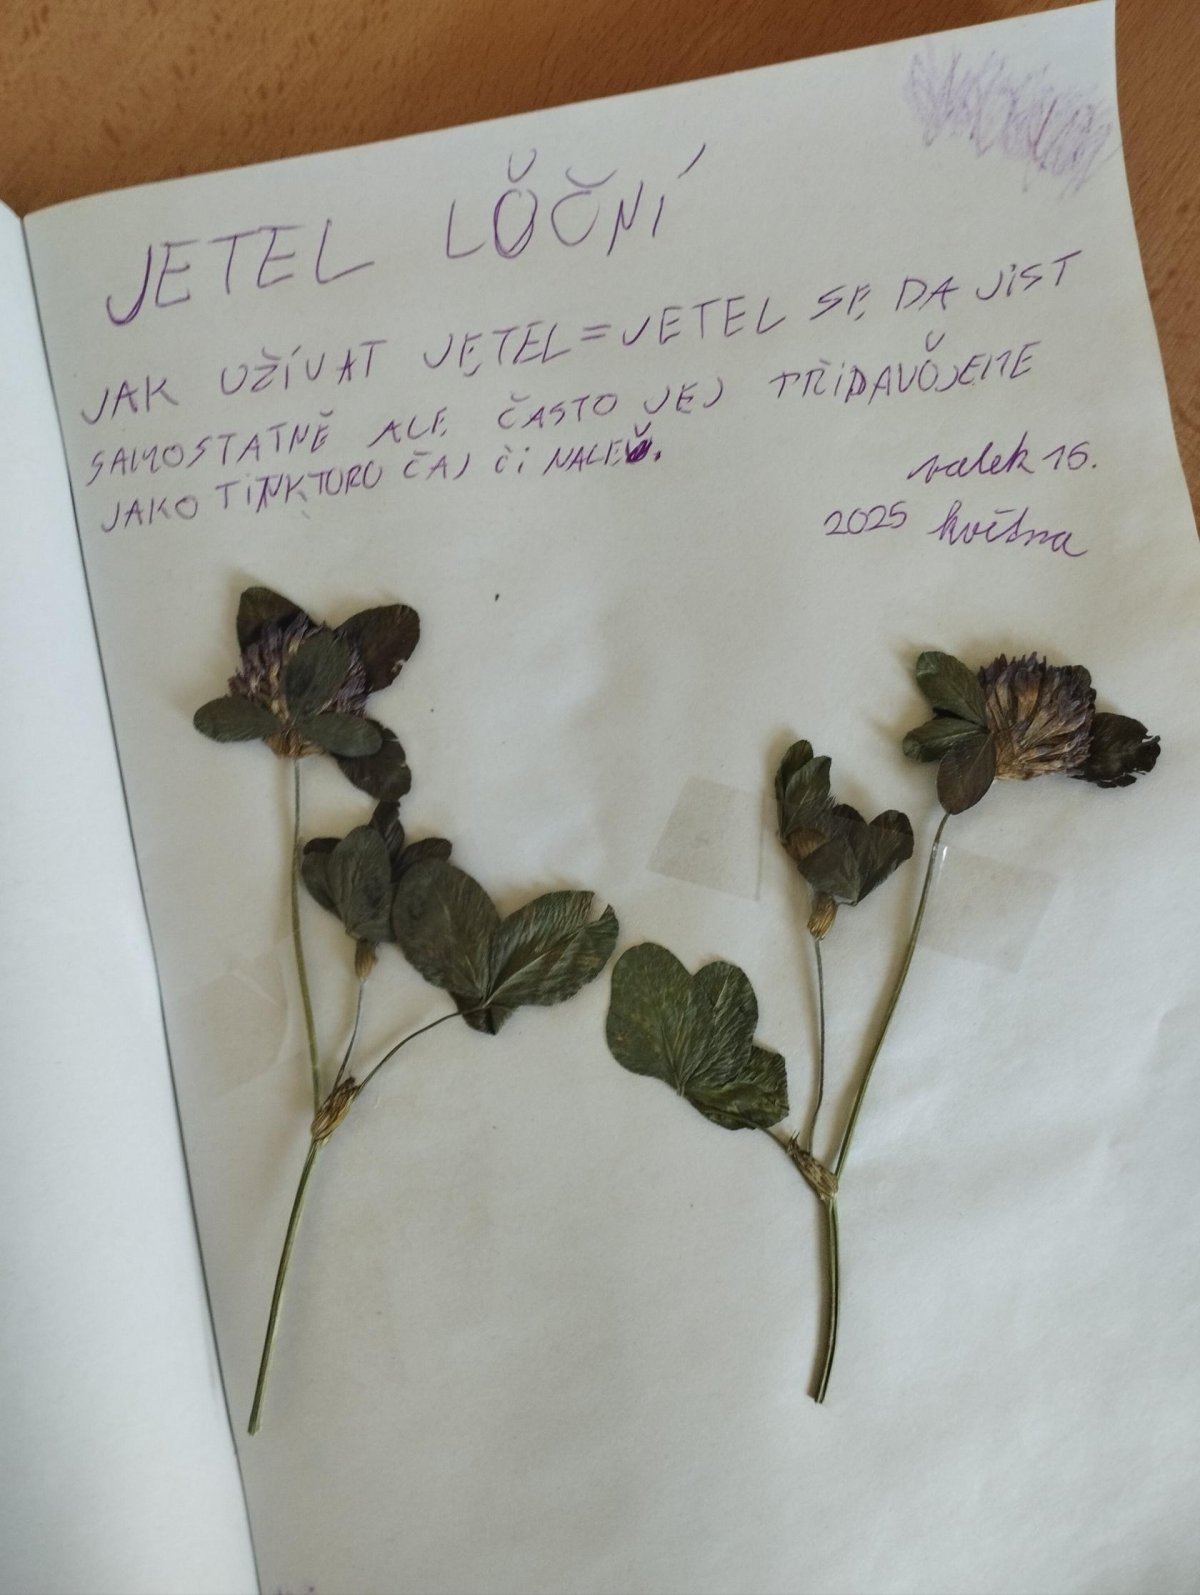 JETEL LŎČNÍ
JAK UŽÍVAT JETEL=JETEL SE DA JíST
SAMOSTATNĚ ALE ČASTO JEJ PŘIDAVŎJEME
JAKO TiNKTORO ČAJ či NALEV.
valek 16.
2025 května